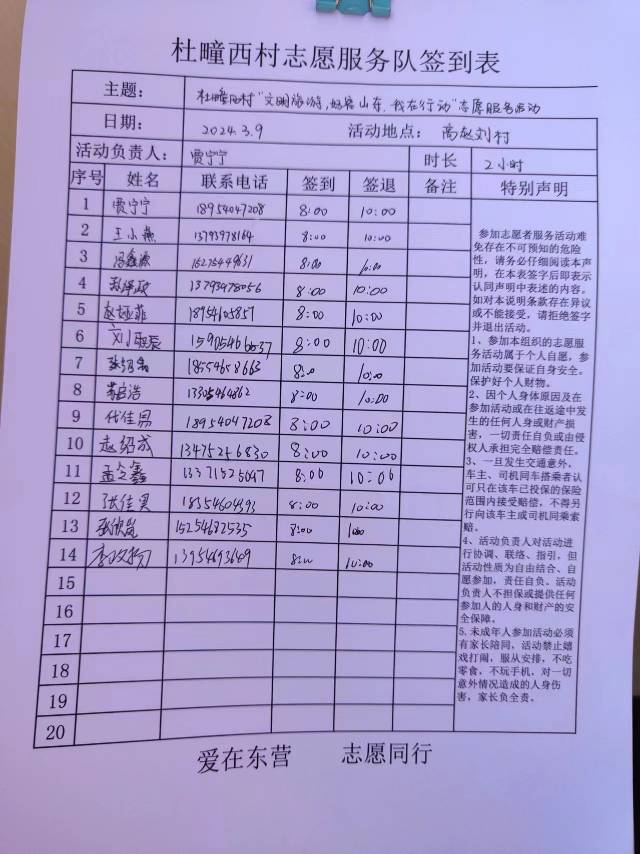 杜疃西村志愿服务队签到表
主题： 杜疃西村“文明旅游，好客山东，我在行动”志愿服务活动
日期： 2024.3.9 活动地点： 高赵刘村
活动负责人： 贾宁宁 时长 2小时
序号 姓名 联系电话 签到 签退 备注 特别声明
1 贾宁宁 18954047208 8:00 10:00
2 王小燕 13793978164 8:00 10:00
3 15275449631 8:00 10:00
4 13793978056 8:00 10:00
5 8:00 10:00
6 8:00 10:00
7 18554658663 8:00 10:00
8 13305464862 8:00 10:00
9 代佳男 18954047208 8:00 10:00
10 赵绍成 13475256830 8:00 10:00
11 孟令鑫 13371525097 8:00 10:00
12 张佳昊 18354604393 8:00 10:00
13 张欣岚 15254682535 8:00
14 李政扬 13954693649 8:00 10:00
15
16
17
18
19
20
参加志愿者服务活动难
免存在不可预知的危险
性，请务必仔细阅读本声
明，在本表签字后即表示
认同声明中表述的内容。
如对本说明条款存在异议
或不能接受，请拒绝签字
并退出活动。
1、参加本组织的志愿服
务活动属于个人自愿，参
加活动要保证自身安全。
保护好个人财物。
2、因个人身体原因及在
参加活动或在往返途中发
生的任何人身或财产损
害，一切责任自负或由侵
权人承担完全赔偿责任。
3、一旦发生交通意外，
车主、司机同车搭乘者认
可只在该车已投保的保险
范围内接受赔偿，不得另
行向该车主或司机同乘索
赔。
4、活动负责人对活动进
行协调、联络、指引，但
活动性质为自由结合、自
愿参加，责任自负。活动
负责人不担保或提供任何
参加人的人身和财产的安
全保障。
5.未成年人参加活动必须
有家长陪同，活动禁止嬉
戏打闹，服从安排，不吃
零食，不玩手机，对一切
意外情况造成的人身伤
害，家长负全责。
爱在东营 志愿同行